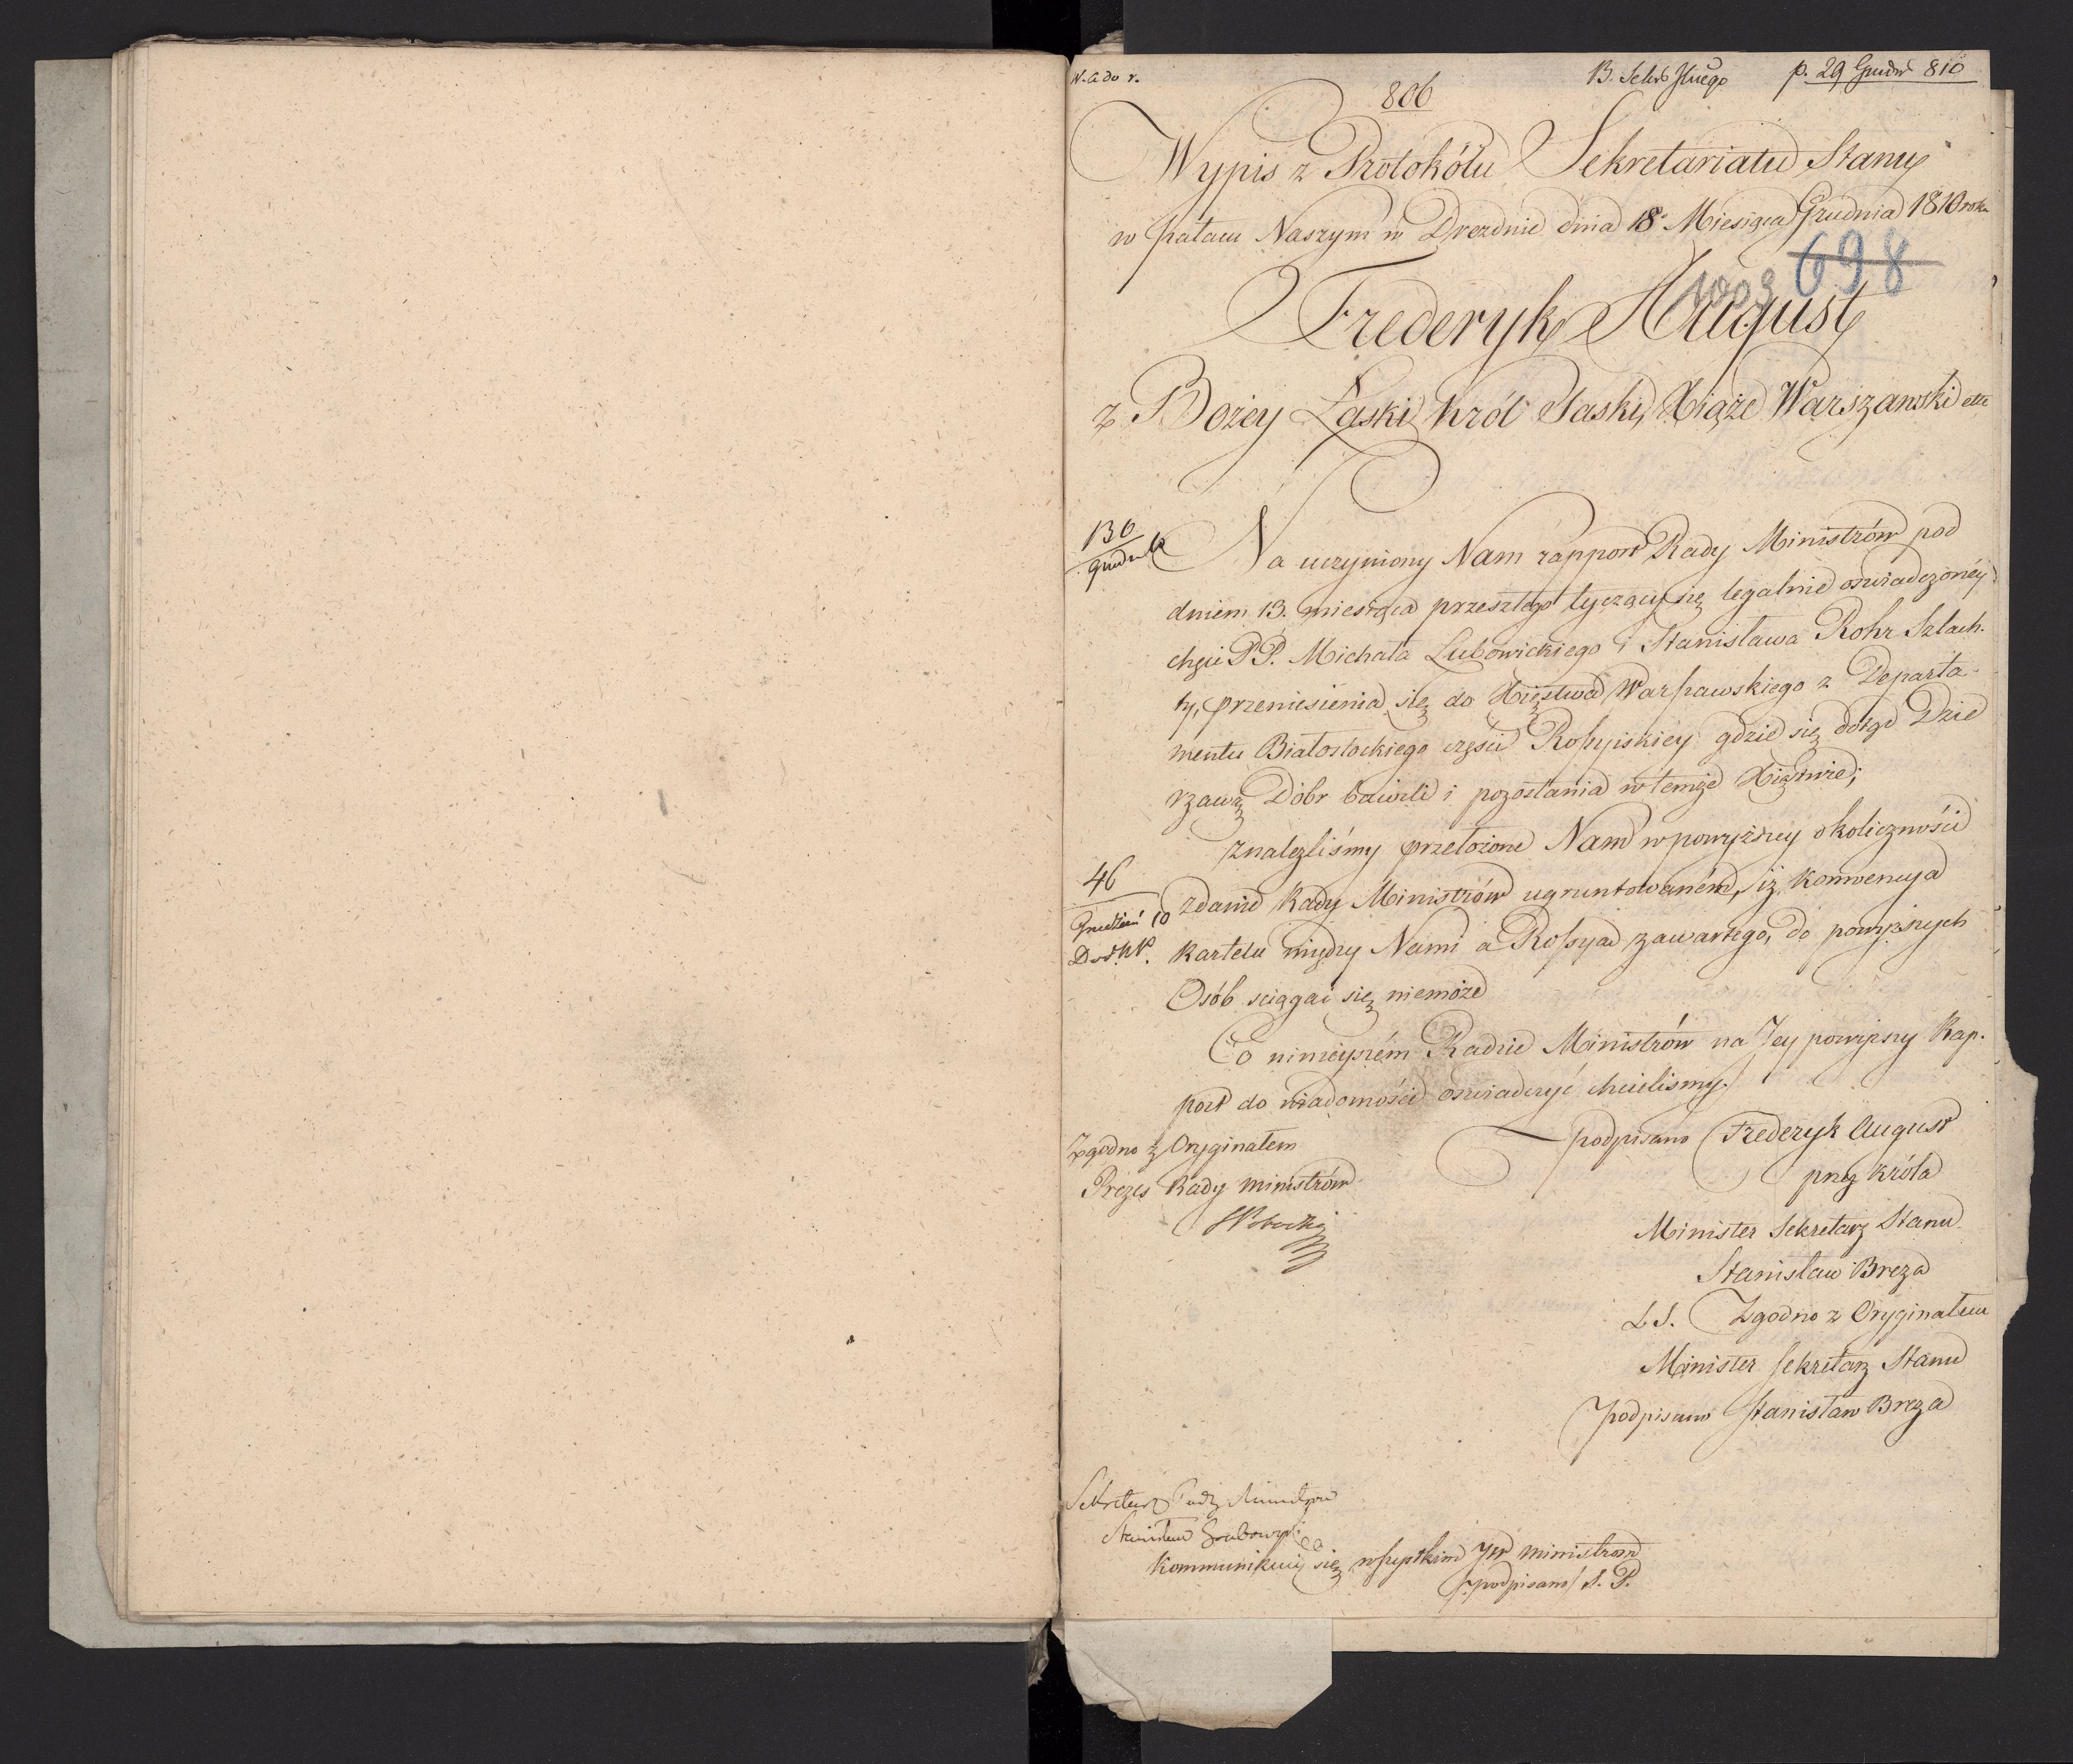 B. p. 29 Grudn 810
806
Wypis z Protokółu Sekretariatu Stanu
w pałacu Naszym w Dreznie dnia 18. Miesiąca Grudnia 1810 roku
698
1003
Frederyk August
z Bożey Łaski Król Saski, Xiąże Warszawski etc
136
Na uczyniony Nam rapport Rady Ministrów pod
dniem 13. miesiąca przeszłego tyczący się legalnie oswiadczonéy
chęci PP. Michała Lubowickiego i Stanisława Rohr Szlach.
ty, przeniesienia się do Xięstwa Warszawskiego z Departa
mentu Białostockiego częsci Rossyiskiéy gdzie się dotąd Dzie
rzawą Dóbr bawili i pozostania w temże Xięstwie;
znalezliśmy przełożone Nam w powyższey okoliczności
46
zdanie Rady Ministrów ugruntowaném, iż konwencya
Grudzień 10
kartelu między Nami a Rossyą zawartego, do powyższych
Osób sciągać się niemoże
Co ninieyszém Radzie Ministrów na Jey powyższy Rap.
port do wiadomości oswiadczyć chcieliśmy.
Zgodno z Oryginałem
podpisano Frederyk August
Prezes Rady Ministrów
przez Króla
Minister Sekretarz Stanu
Stanisław Breza
L.S. Zgodno z Oryginałem
Minister Sekretarz Stanu
podpisano Stanisław Breza
Sekretarz Rady Ministrów
Stanisław Grabowski
Kommunikuie się wszystkim JW Ministrom
/:podpisano/ S. P.